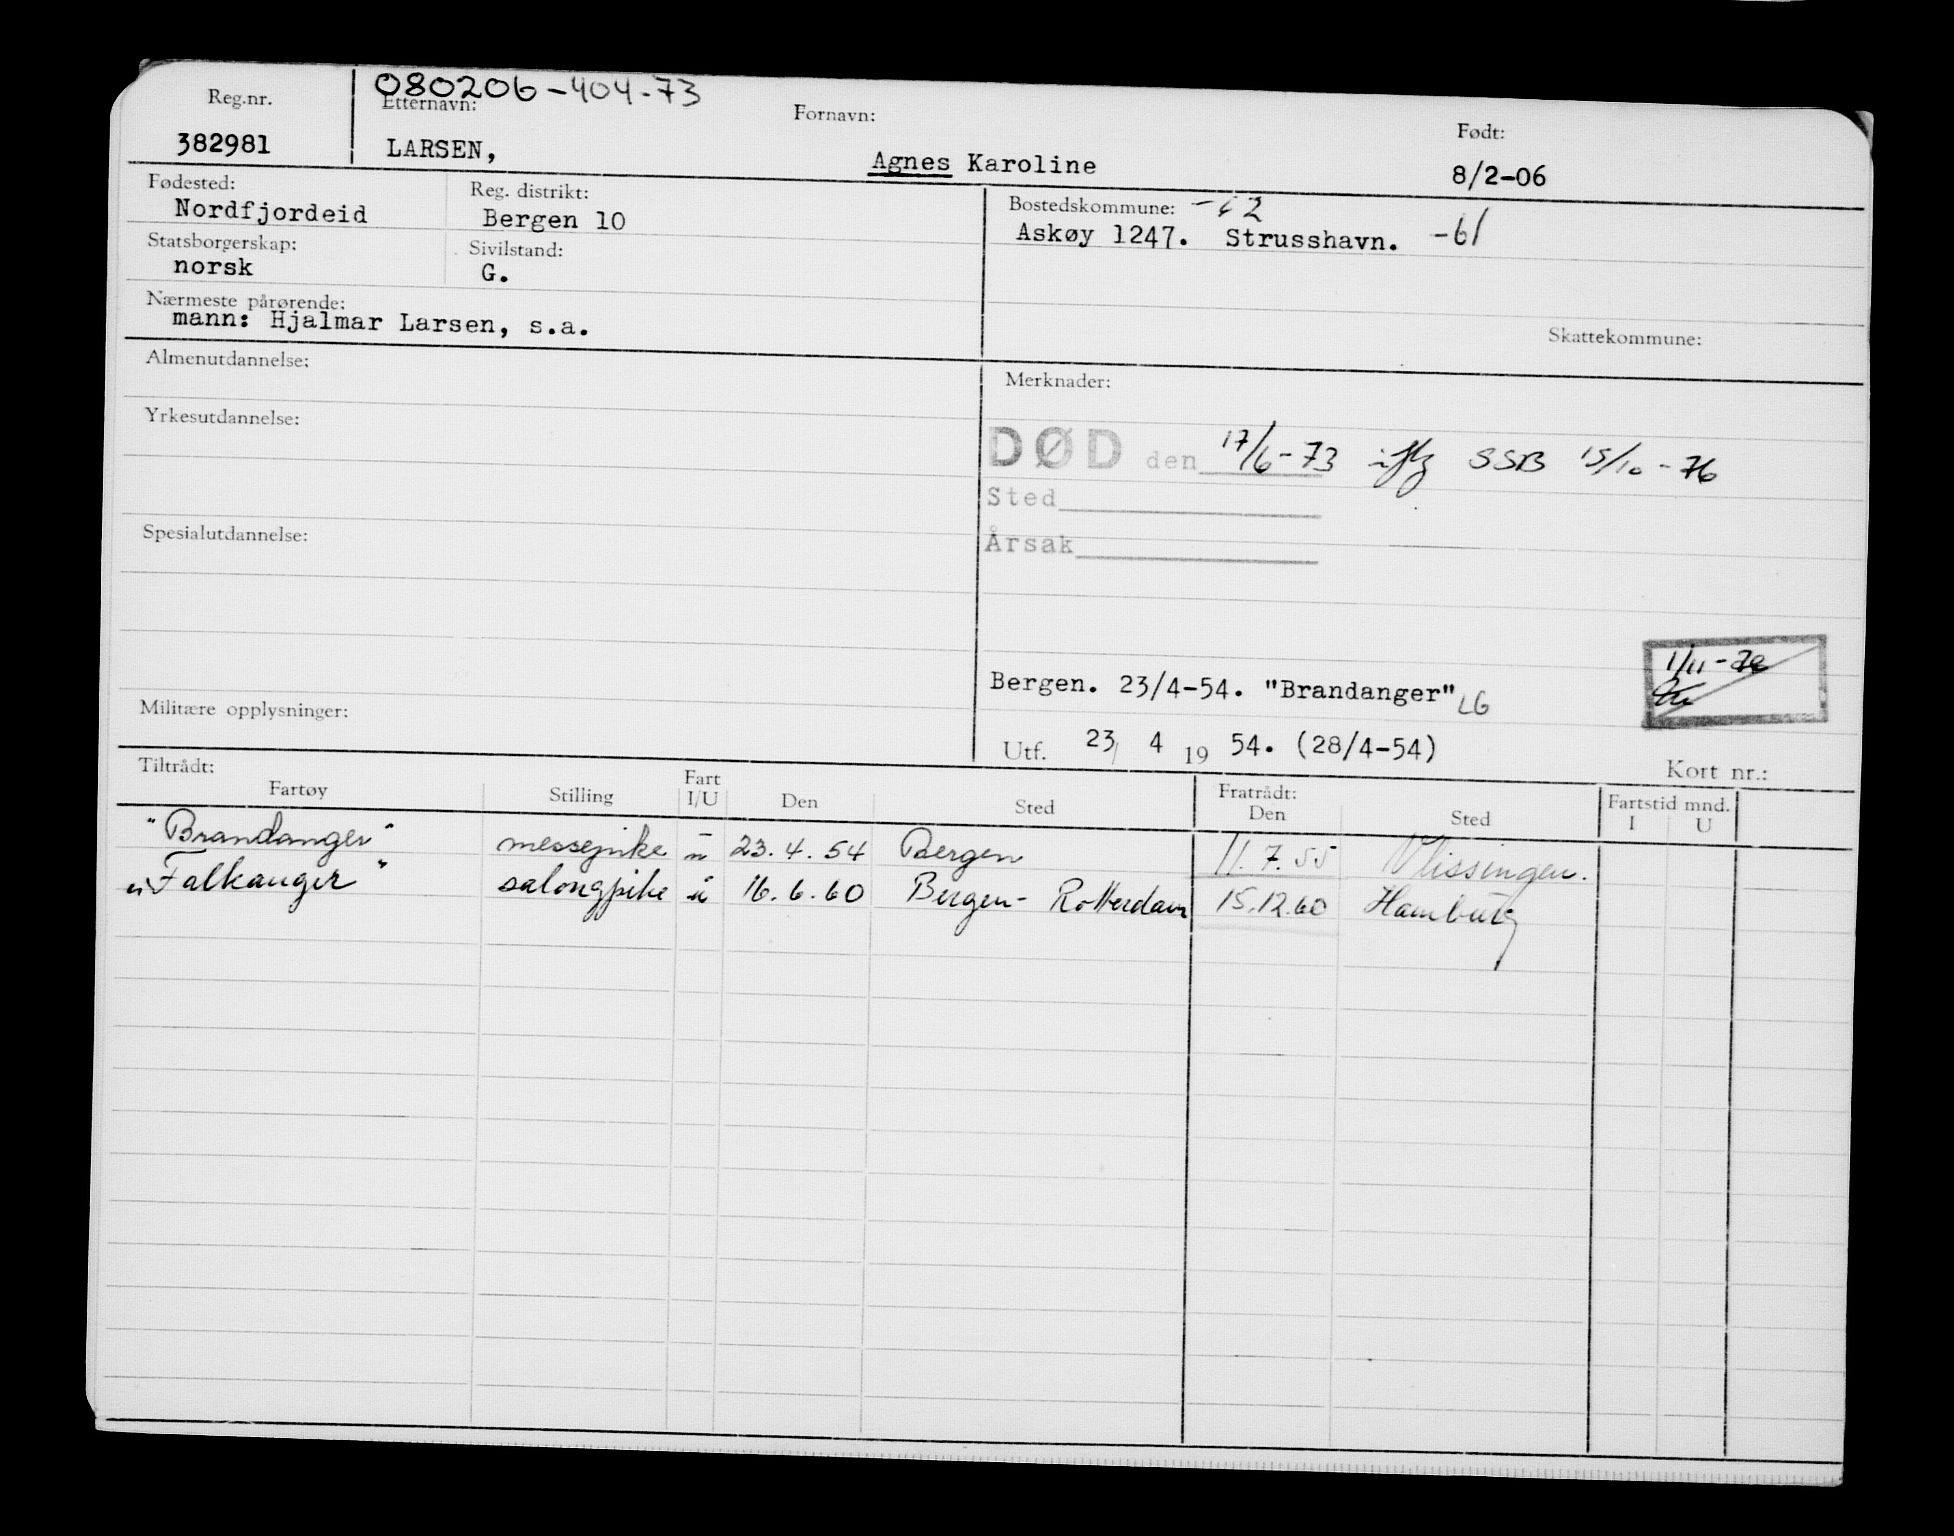 080206-404-73
Reg.nr. Etternavn: Fornavn: Født:
382981 LARSEN, Agnes Karoline 8/2-06
Fødested: Reg. distrikt: Bostedskommune:
Nordfjordeid Bergen 10 Askøy 1247. Strusshavn. -61
Statsborgerskap: Sivilstand:
norsk G.
Nærmeste pårørende:
mann: Hjalmar Larsen, s.a.
Skattekommune:
Almenutdannelse:
Merknader:
Yrkesutdannelse:
DØD den 17/6-73 iflg SSB 15/10-76
Sted
Årsak
Spesialutdannelse:
1/11-72
Bergen. 23/4-54. "Brandanger" LG
Militære opplysninger:
Utf. 23/ 4 19 54. (28/4-54)
Kort nr.:
Tiltrådt: Fratrådt: Fartstid mnd.
Fartøy Stilling Fart I/U Den Sted Den Sted I U
"Brandanger" messepike u 23.4.54 Bergen 11.7.55 Vlissingen.
"Falkanger" salongpike u 16.6.60 Bergen- Rotterdam 15.12.60 Hamburg